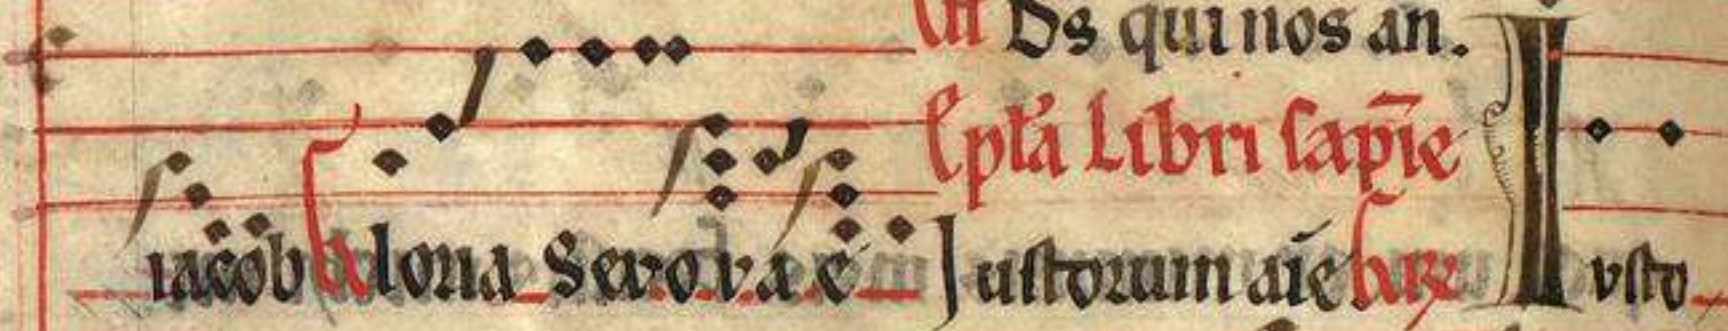 Ds qui nos an.
Eplã Libri sapie
iacob Gloria Seuouae Justorum aie Iusto